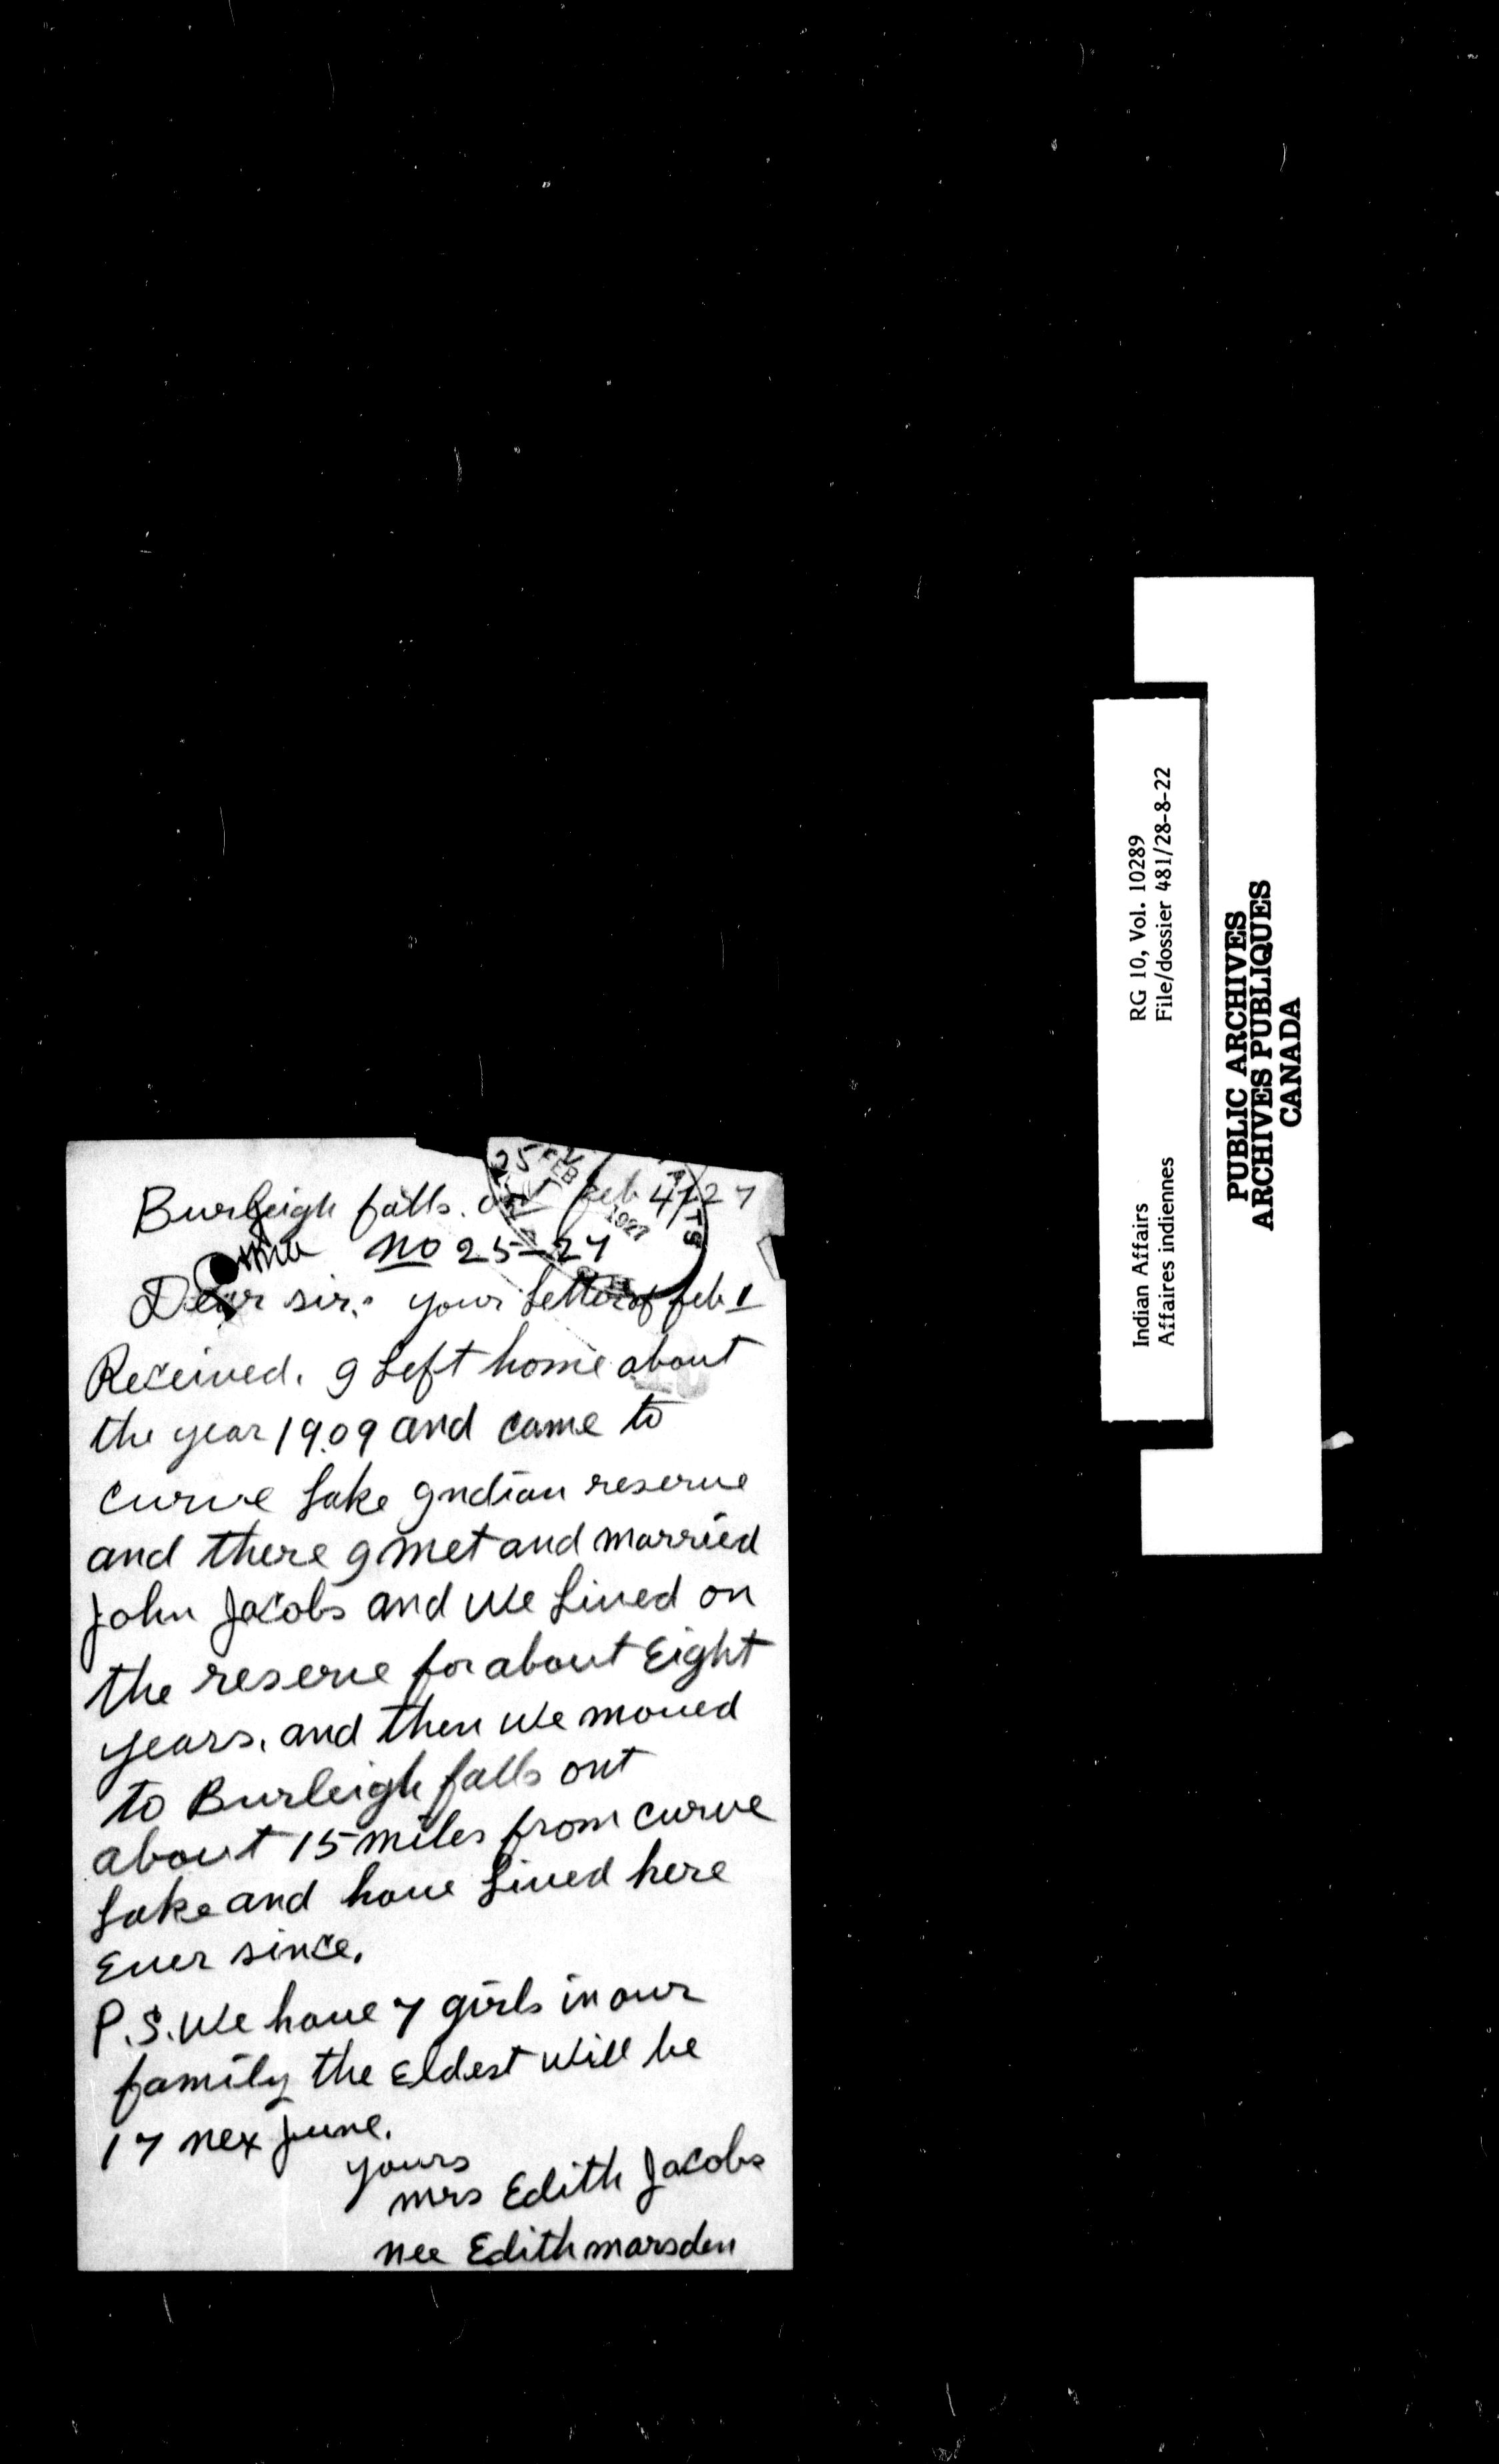 Burleigh falls. ont feb 4/27
no 25-27
Dear sir:. your Letter of feb 1
Received. I Left home about
the year 1909 and came to
curve Lake Indian reserve
and there I met and married
John Jacobs and we Lived on
the reserve for about Eight
years. and then we moved
to Burleigh falls out
about 15 miles from curve
Lake and have Lived here
Ever since.
P.S. We have 7 girls in our
family the Eldest will be
17 nex June.
yours
mrs Edith Jacobs
nee Edith marsden
FEB
1927
Indian Affairs RG 10, Vol. 10289
Affaires indiennes File/dossier 481/28-8-22
PUBLIC ARCHIVES
ARCHIVES PUBLIQUES
CANADA